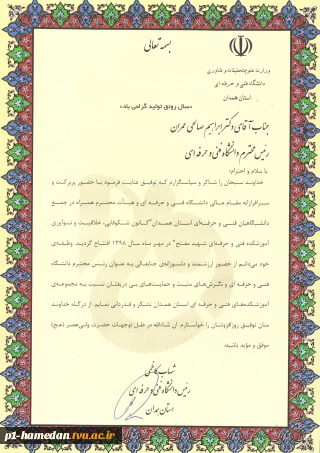 بسمه تعالی
وزارت علوم تحقیقات و فناوری
دانشگاه فنی و حرفه ای
استان همدان
«سال رونق تولید گرامی باد»
جناب آقای دکتر ابراهیم صالحی عمران
رئیس محترم دانشگاه فنی و حرفه ای
با سلام و احترام؛
خداوند سبحان را شاکر و سپاسگزارم که توفیق عنایت فرمود با حضور پربرکت و
سرافرازانه مقام عالی دانشگاه فنی و حرفه ای و هیأت محترم همراه در جمع
دانشگاهیان فنی و حرفه‌ای استان همدان "کانون شکوفایی، خلاقیت و نوآوری
آموزشکده فنی و حرفه‌ای شهید مفتح" در مهر ماه سال ۱۳۹۸ افتتاح گردید. وظیفه‌ی
خود می‌دانم از حضور ارزشمند و دلسوزانه‌ی جنابعالی به عنوان رئیس محترم دانشگاه
فنی و حرفه ای و نگرش‌های مثبت و حمایت‌های بی دریغتان نسبت به مجموعه‌ی
آموزشکده‌های فنی و حرفه ای استان همدان تشکر و قدردانی نمایم. از درگاه خداوند
منان توفیق روزافزونتان را خواستارم. ان شاءالله در ظل توجهات حضرت ولی‌عصر (عج)
موفق و مؤید باشید.
شهاب کاظمی
رئیس دانشگاه فنی و حرفه ای
استان همدان
p1-hamedan.tvu.ac.ir